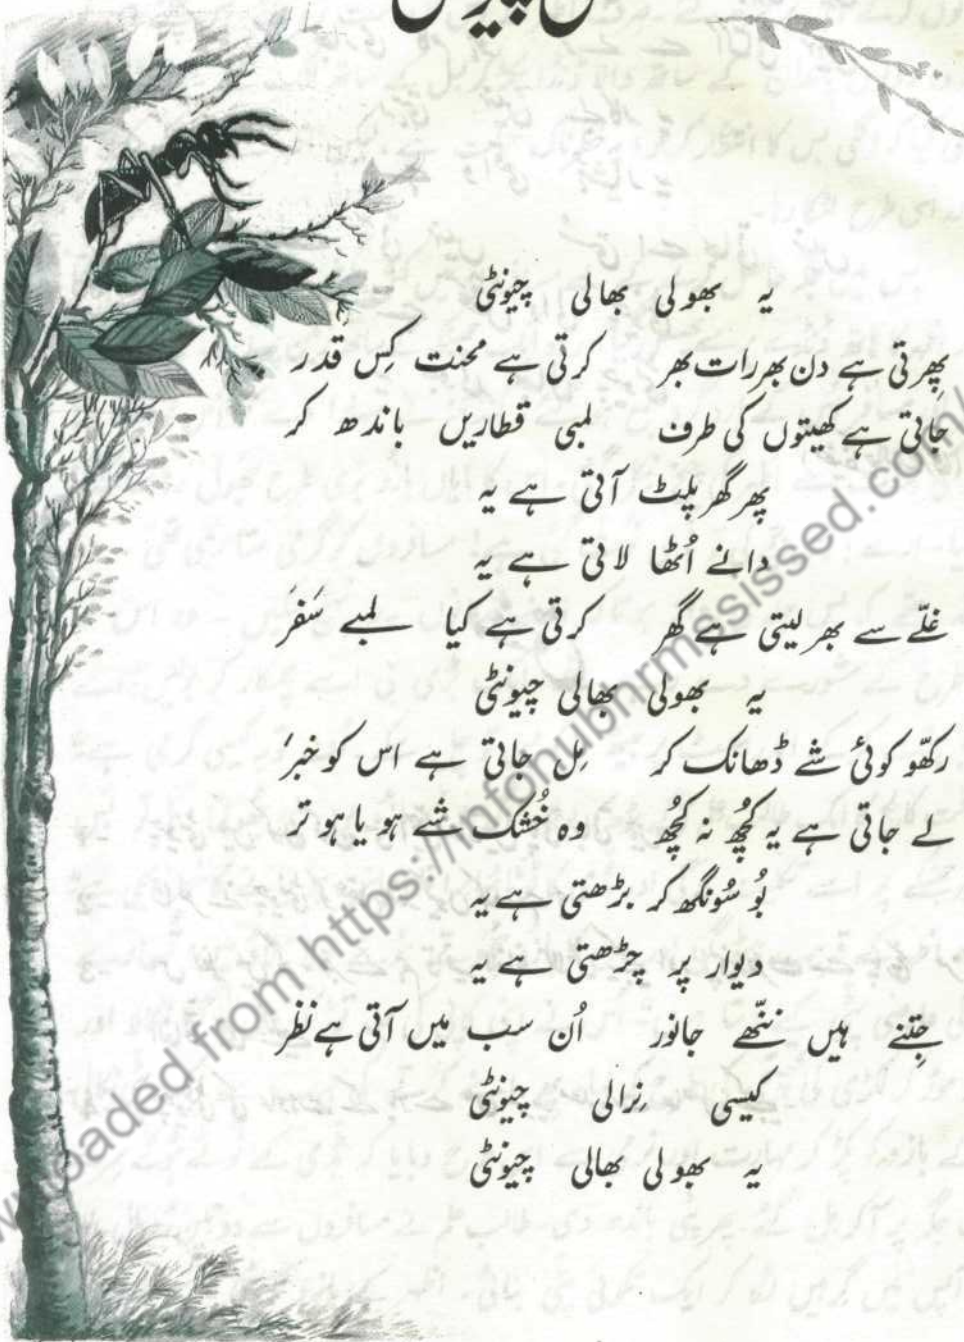 یہ بھولی بھالی چیونٹی
پھِرتی ہے دن بھر رات بھر کرتی ہے محنت کِس قدر
جاتی ہے کھیتوں کی طرف لمبی قطاریں باندھ کر
پھر گھر پلٹ آتی ہے یہ
دانے اُٹھا لاتی ہے یہ
غلّے سے بھر لیتی ہے گھر کرتی ہے کیا لمبے سَفَر
یہ بھولی بھالی چیونٹی
رکھّو کوئی شے ڈھانک کر مِل جاتی ہے اس کو خبر
لے جاتی ہے یہ کُچھ نہ کُچھ وہ خُشک شے ہو یا ہو تر
بُو سُونگھ کر بڑھتی ہے یہ
دیوار پر چڑھتی ہے یہ
جِتنے ہیں ننّھے جانور اُن سب میں آتی ہے نظر
کیسی نِرالی چیونٹی
یہ بھولی بھالی چیونٹی
oaded from https://infohubhrmssissed.com/